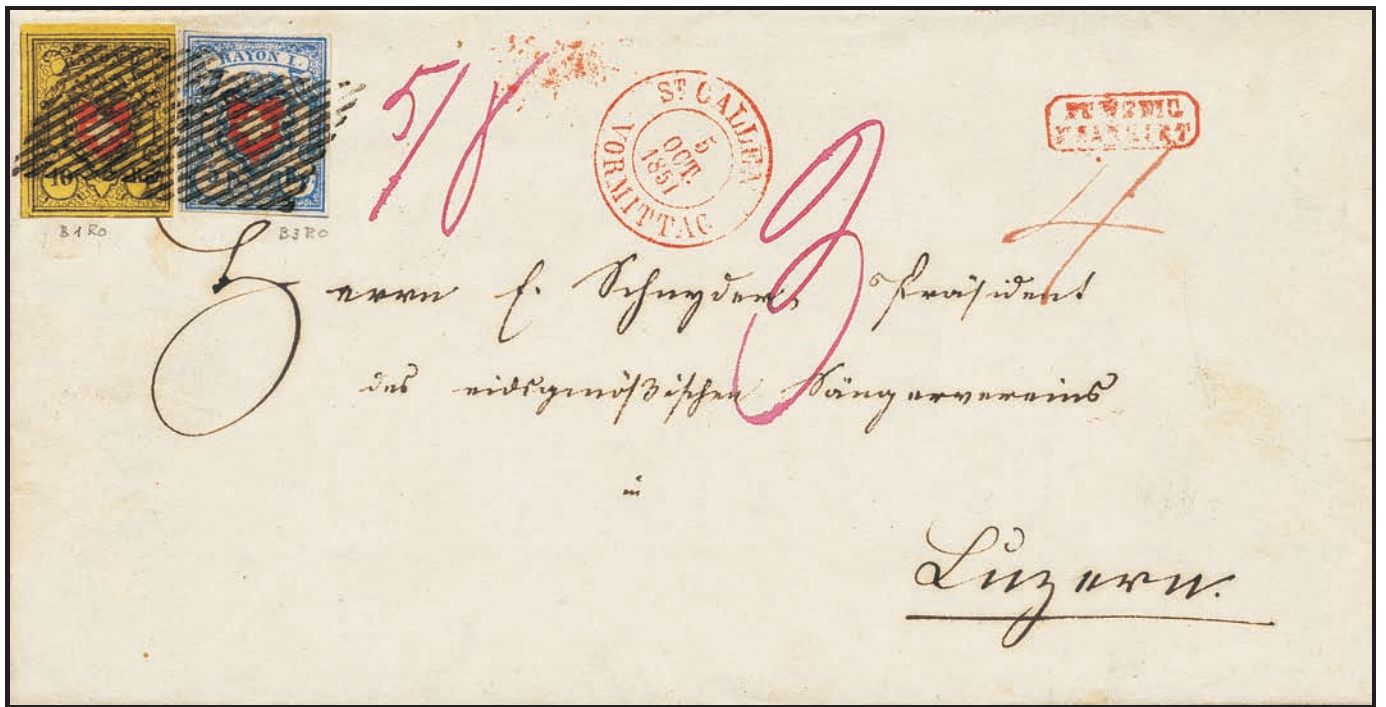 RAYON I.
10
5/8
ST GALLEN
5
OCT.
1851
VORMITTAG
3
4
B1R0
B3R0
Herrn F. Schnyder, Präsident
des eidsgenößischen Sängervereins
in
Luzern.